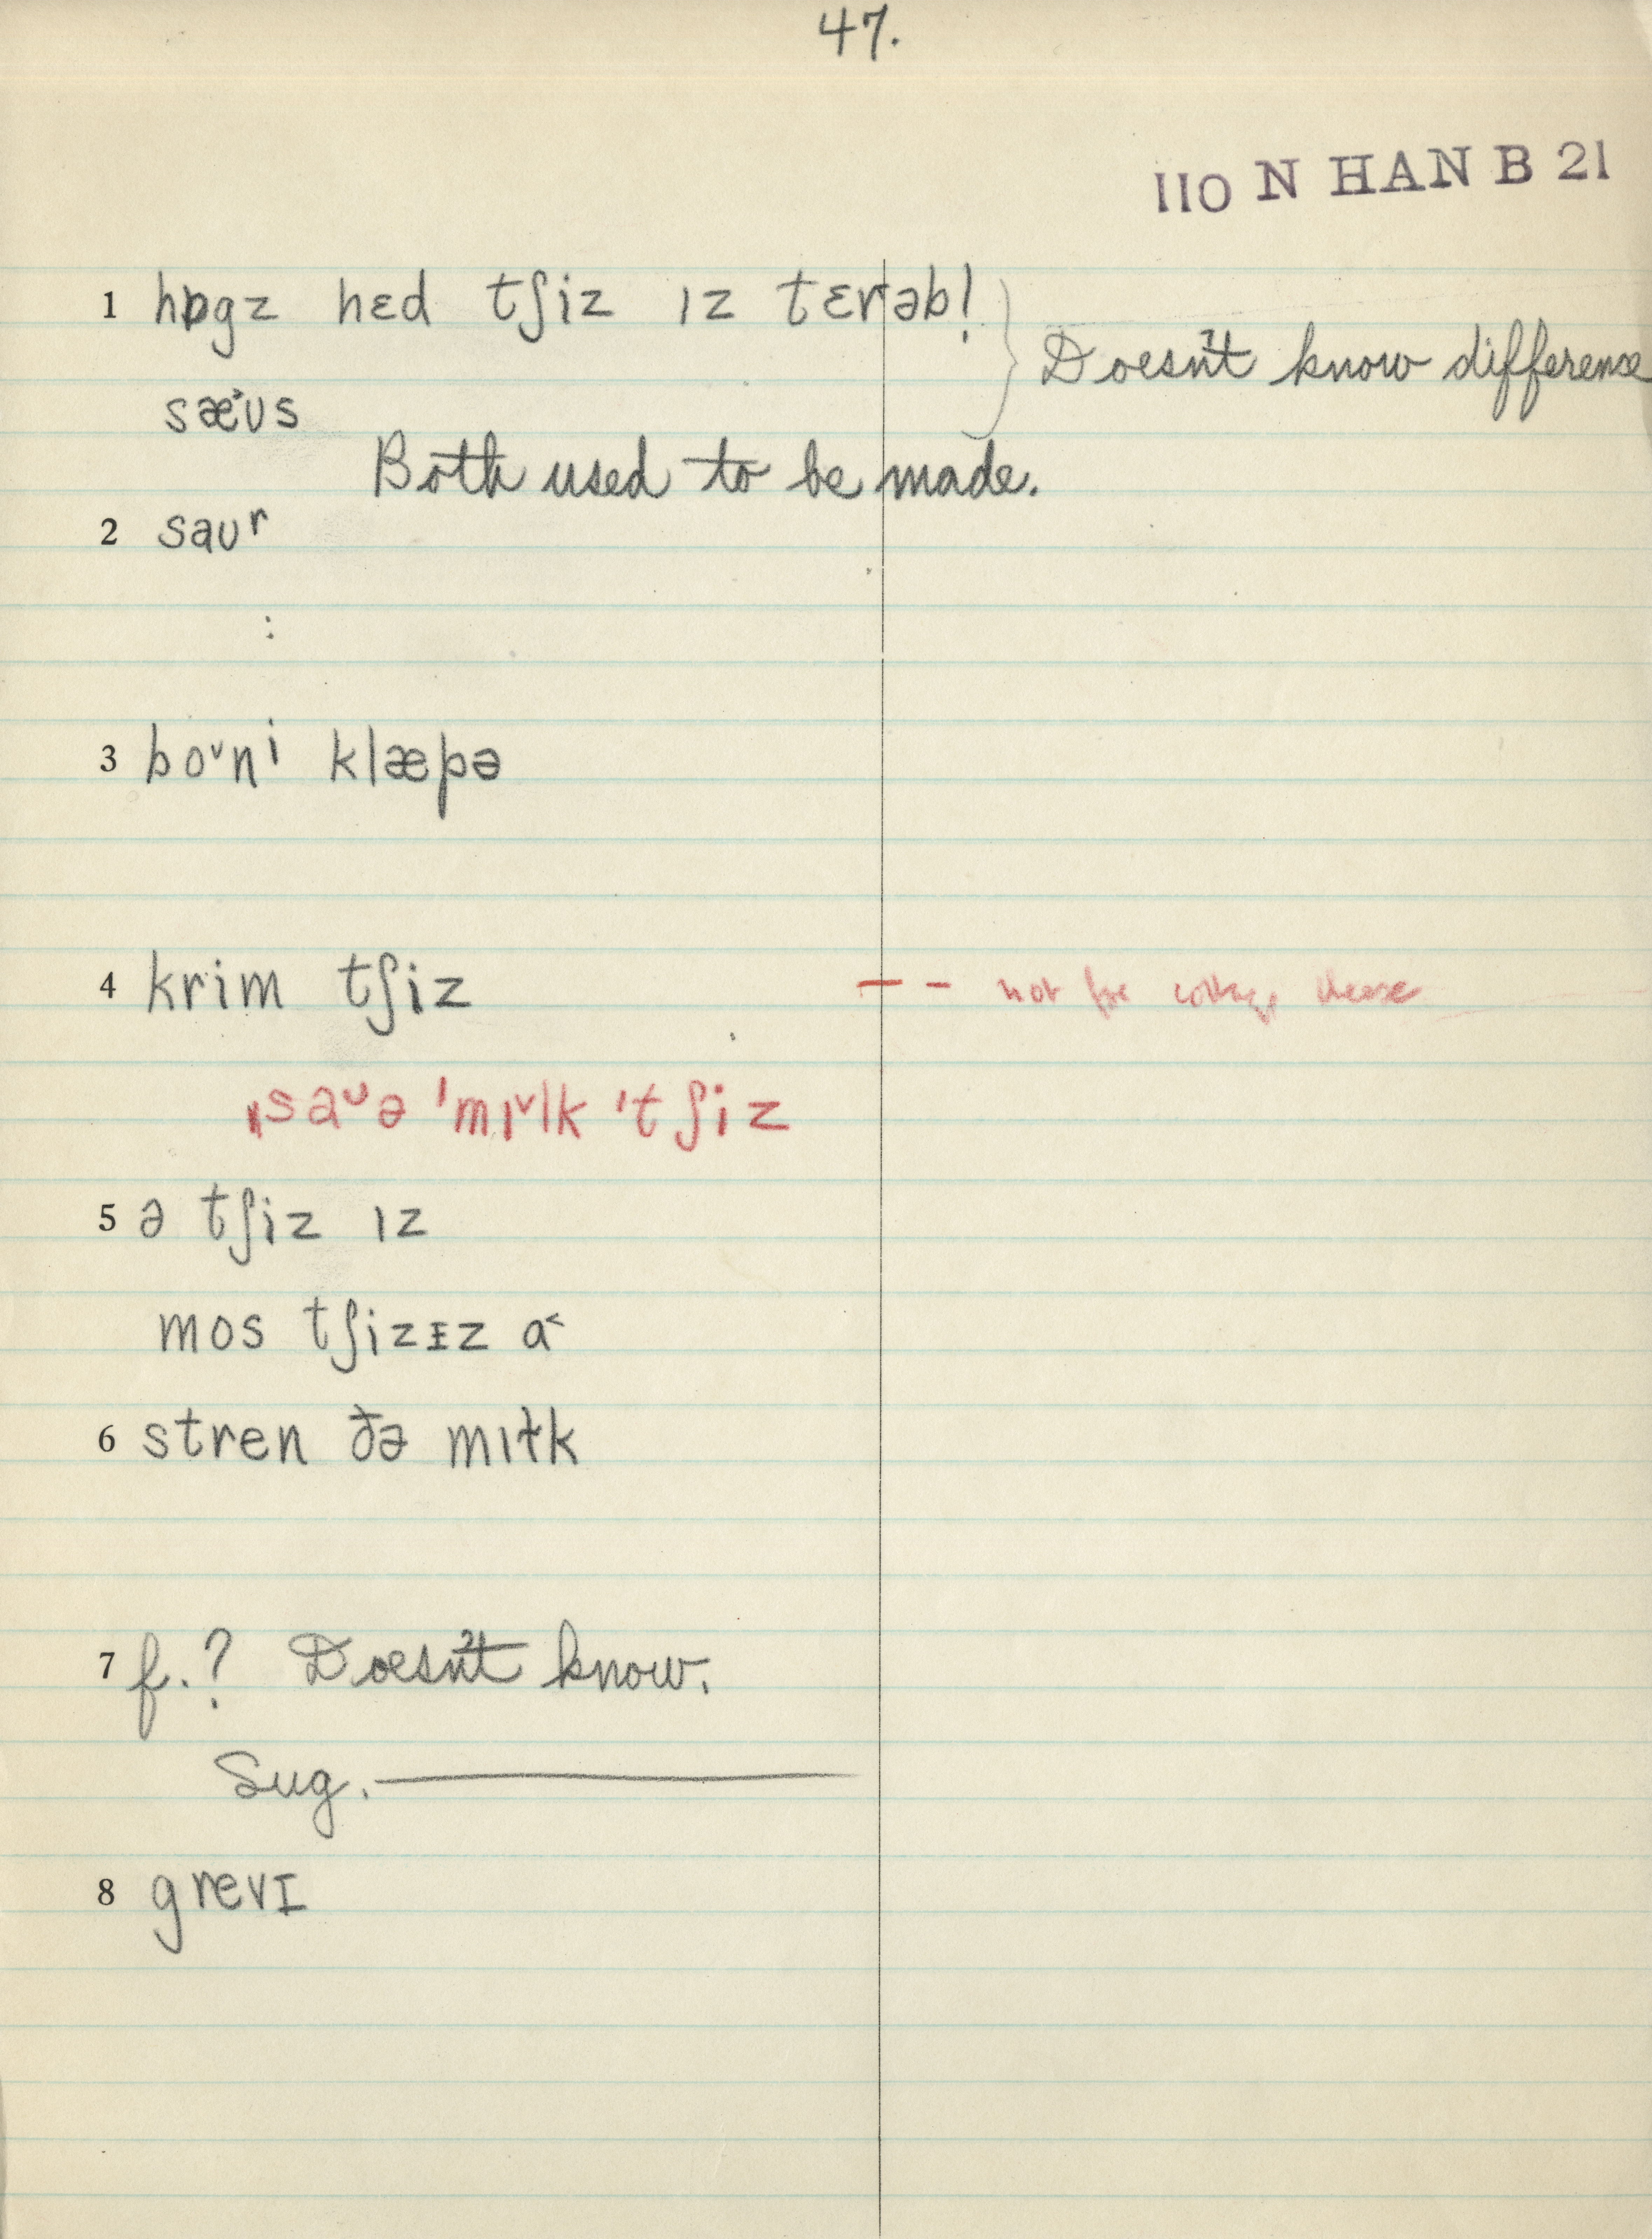 47.
110 N HAN B 21
1 hɒgz hɛd tʃiz ɪz tɛrəb! } Doesn't know difference
sæ˃ʊs
Both used to be made.
2 saʊʳ
3 boᵛnⁱ klæpə
4 krim tʃiz -- not for cottage cheese
ˌsaᵘə ˈmɪᵛlk ˈtʃiz
5 ə tʃiz ɪz
mos tʃizᵻz ɑ˂
6 stren ðə mɪɫk
7 f.? Doesn't know.
Sug. —
8 grevɪ